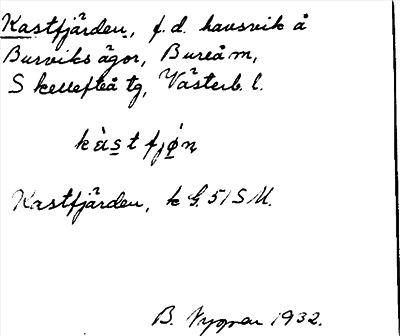 Kastfjärden, f.d. havsvik å
Burviks ägor, Bureå m,
Skellefteå tg, Västerb. l.
kàs̲tfjǿṇ
Kastfjärden, k G. 51 S M.
B. Nygren 1932.